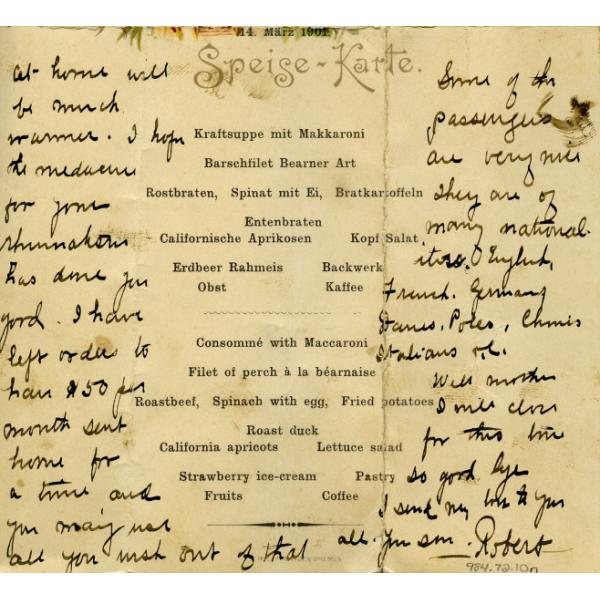 14. März 1901
Speise-Karte.
Kraftsuppe mit Makkaroni
Barschfilet Bearner Art
Rostbraten, Spinat mit Ei, Bratkartoffeln
Entenbraten
Californische Aprikosen Kopf Salat
Erdbeer Rahmeis Backwerk
Obst Kaffee
Consommé with Maccaroni
Filet of perch à la béarnaise
Roastbeef, Spinach with egg, Fried potatoes
Roast duck
California apricots Lettuce salad
Strawberry ice-cream Pastry
Fruits Coffee
at home will
be much
warmer. I hope
the medacine
for your
has done you
good. I have
left orders to
have $50 per
month sent
home for
a time and
you may use
all you wish out of that
Some of the
passengers
are very nice
They are of
many national-
ities. English,
French. Germans
Danes. Poles,
Italians
Well mother
I will close
for this time
so good bye
I send my love to you
all. Your son. Robert
984.72.10